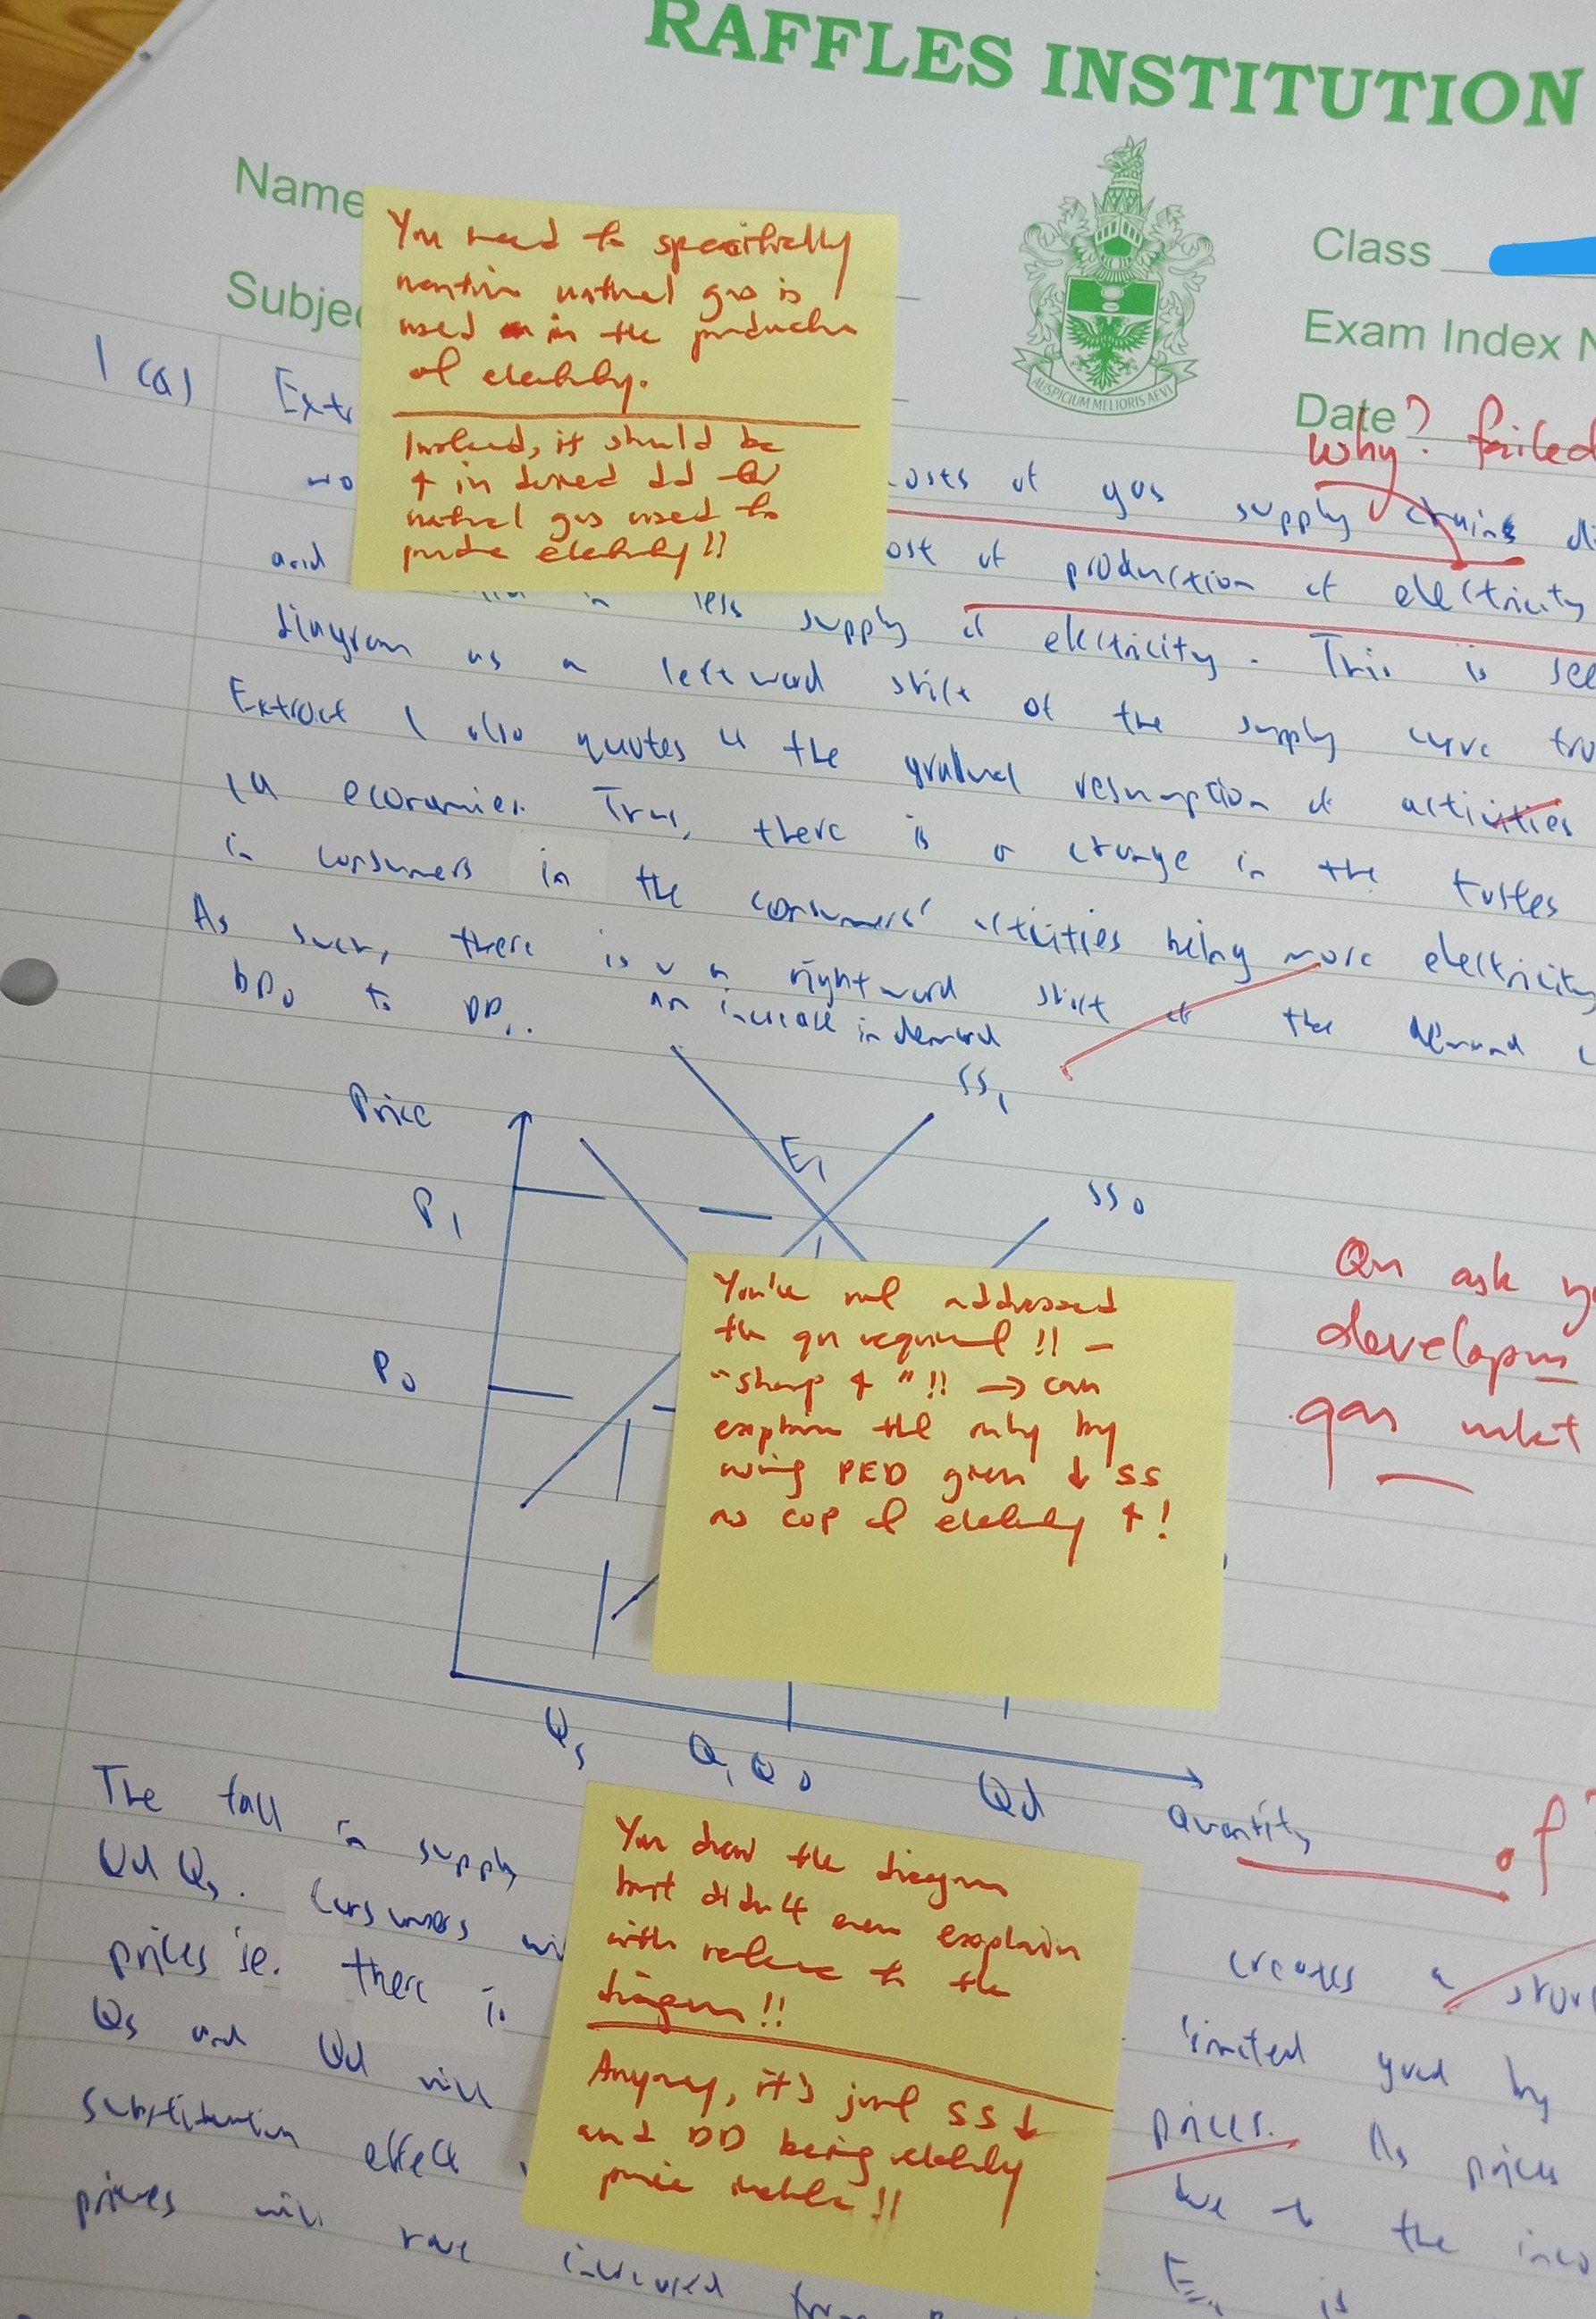 RAFFLES INSTITUTION
Name
Class
Subje
Exam Index N
AUSPICIUM MELIORIS AEVI
Date
You need to specifically
mention natural gas is
used in the production
of electricity.
Instead, it should be
↑ in derived dd for
natural gas used to
produce electricity!!
why? failed
1 (a)
Extr
costs of gas supply chains di
and
ost of production of electricity
in less supply of electricity. This is see
diagram as a leftward shift of the supply curve fro
Extract 1 also quotes " the gradual resumption of activities
in economies. Thus, there is a change in the tastes
in consumers in the consumers' activities being more electricity
As such, there is a rightward shift of the demand c
an increase in demand
DD0 to DD1.
Price
SS1
E1
SS0
P1
P0
You've not addressed
the qn requirement!! –
"sharp ↑"!! → can
explain this only by
using PED given ↓ SS
as cop of electricity ↑!
Qn ask yo
developm
gas mkt
Qs
Q1 Q0
Qd
Quantity
of
You drew the diagram
but didn't even explain
with reference to the
diagram!!
Anyway, it's just SS ↓
and DD being relatively
price inelastic!!
The fall in supply
creates a shor
Qd Qs. Consumers wi
limited good by
prices ie. there is
prices. As prices
Qs and Qd will
due to the inco
substitution effect
E1, is
prices will have increased from